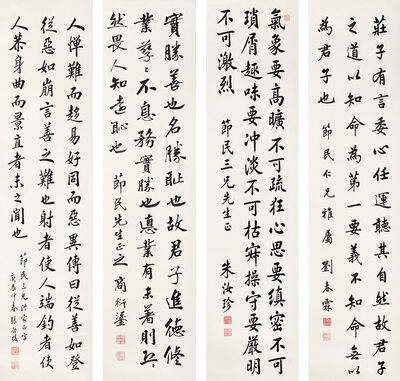 莊子有言委心任運聽其自然故君子
之道以知命為第一要義不知命無以
為君子也 節民仁兄雅屬 劉春霖
氣象要高曠不可疏狂心思要縝密不可
瑣屑趣味要冲淡不可枯寂操守要嚴明
不可激烈 節民三兄先生正 朱汝珍
實勝善也名勝恥也故君子進德修
業孳〻不息務實勝也悳業有未著則恐
然畏人知遠恥也 節民先生正之 商衍鎏
人憚難而趨易好同而惡異傳曰從善如登
從惡如崩言善之難也射者使人端釣者使
人恭身曲而景直者未之聞也
節民三兄法家正字
庚辰仲春張啟後